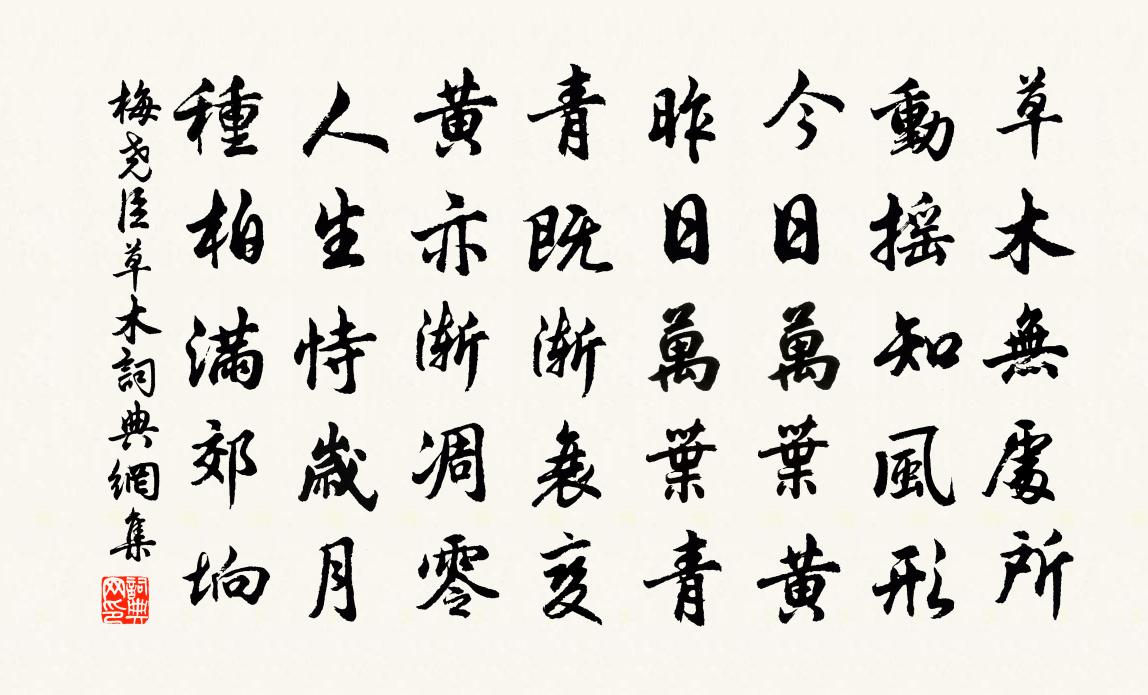 草木無處所
動搖知風形
今日萬葉黃
昨日萬葉青
青既漸衰变
黃亦漸凋零
人生恃歲月
種柏滿郊坰
梅尧臣草木詞典網集
詞典網印